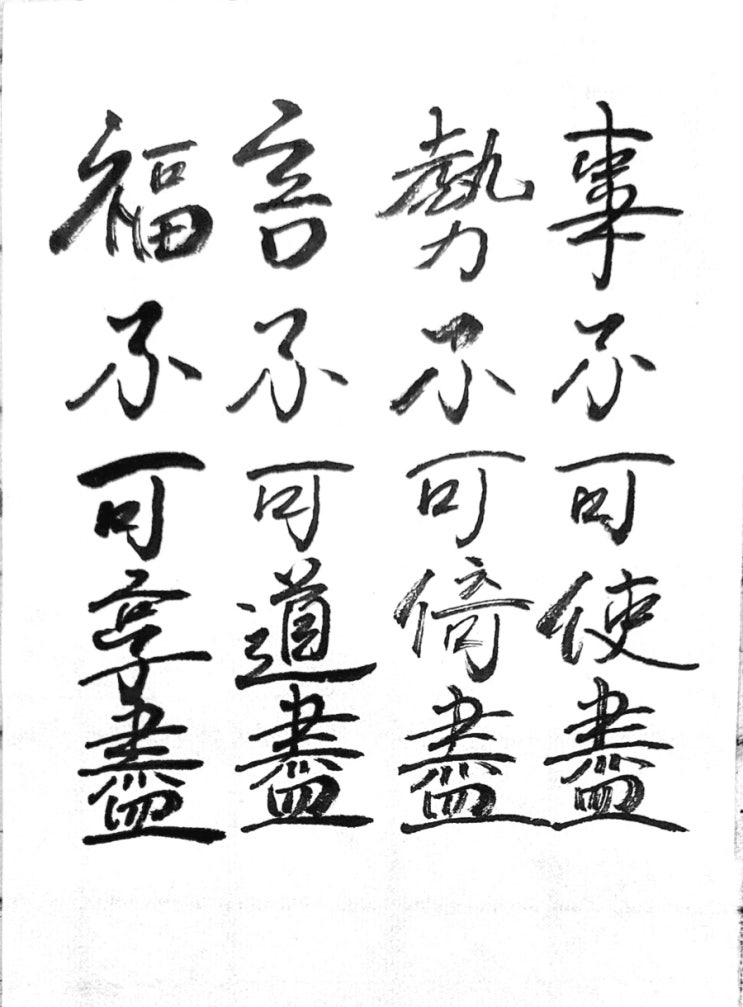 事不可使盡
勢不可倚盡
言不可道盡
福不可享盡